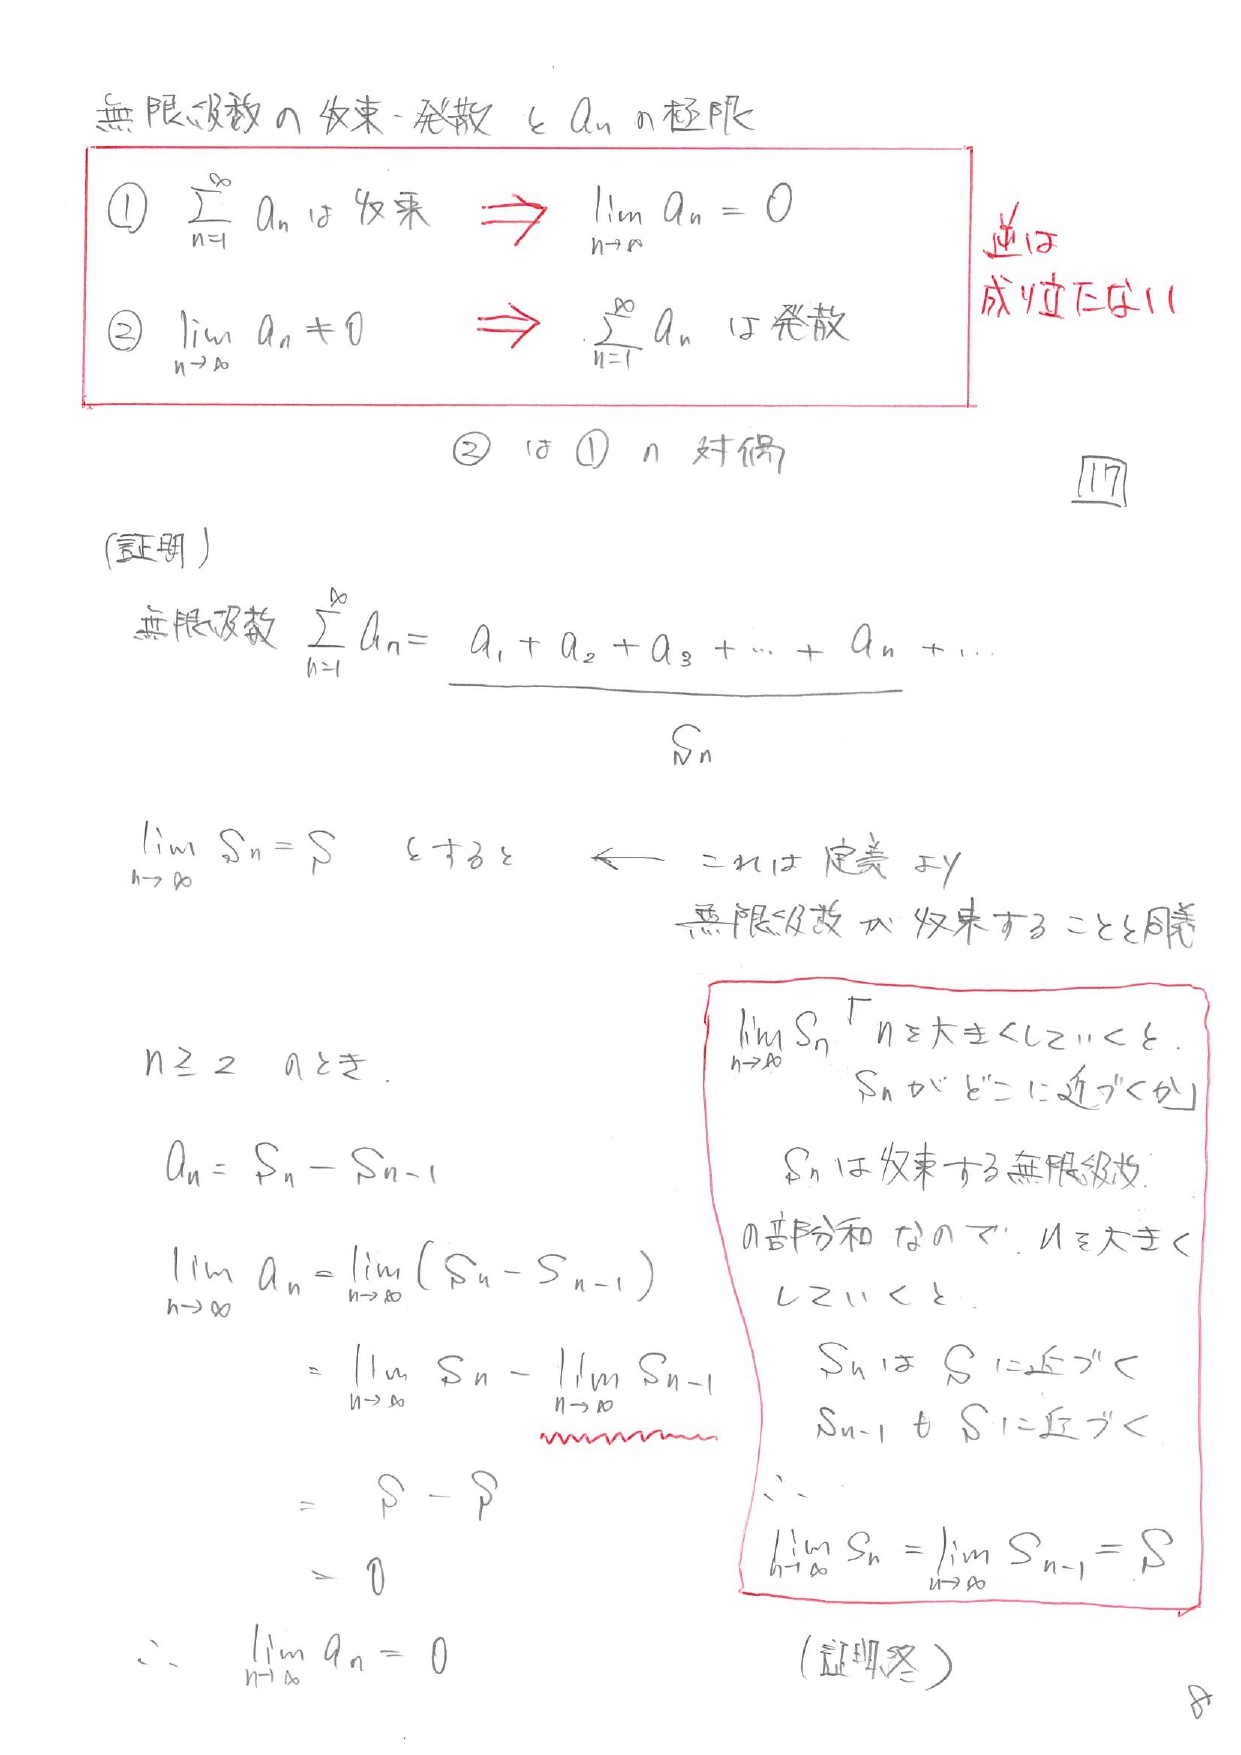 無限級数の収束・発散とanの極限
① ∑_{n=1}^{∞} an は収束 ⇒ lim_{n→∞} an = 0
② lim_{n→∞} an ≠ 0 ⇒ ∑_{n=1}^{∞} an は発散
逆は
成り立たない
②は①の対偶
17
(証明)
無限級数 ∑_{n=1}^{∞} an = a1 + a2 + a3 + … + an + …
Sn
lim_{n→∞} Sn = S とすると ← これは定義より
無限級数が収束することと同義
n ≧ 2 のとき.
an = Sn − Sn−1
lim_{n→∞} an = lim_{n→∞} (Sn − Sn−1)
= lim_{n→∞} Sn − lim_{n→∞} Sn−1
= S − S
= 0
∴ lim_{n→∞} an = 0
lim_{n→∞} Sn「nを大きくしていくと.
Snがどこに近づくか」
Snは収束する無限級数
の部分和なので. nを大きく
していくと.
SnはSに近づく
Sn−1もSに近づく
∴
lim_{n→∞} Sn = lim_{n→∞} Sn−1 = S
(証明終)
8